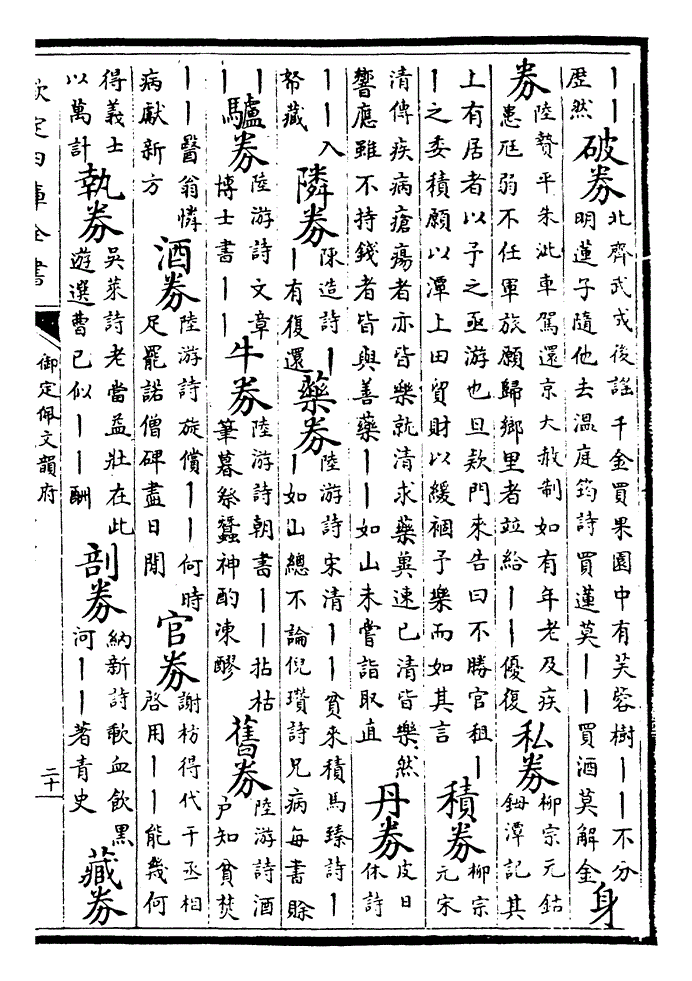 丨丨歷然 破券 北齊武成後謡千金買果園中有芙蓉樹丨丨不分明蓮子隨他去温庭筠詩買蓮莫丨丨買酒莫解金 身
券 陸贄平朱泚車駕還京大赦制如有年老及疾患尫弱不任軍旅願歸鄉里者竝給丨丨優復 私券 柳宗元鈷鉧潭記其
上有居者以予之亟游也旦欵門來告曰不勝官租丨丨之委積願以潭上田貿財以緩禍予樂而如其言 積券 柳宗元宋
清傳疾病瘡瘍者亦皆樂就清求藥冀速已清皆樂然響應雖不持錢者皆與善藥丨丨如山未嘗詣取直 丹券 皮日休詩
丨丨入帑藏 隣券 陳造詩丨丨有復還 藥券 陸游詩宋清丨丨貧來積馬臻詩丨丨如山總不論倪瓚詩兄病每書賒
丨丨 驢券 陸游詩文章博士書丨丨 牛券 陸游詩朝書丨丨拈枯筆暮祭蠶神酌凍醪 舊券 陸游詩酒户知貧焚
丨丨醫翁憐病獻新方 酒券 陸游詩旋償丨丨何時足罷諾僧碑盡日閒 官券 謝枋得代干丞相啓用丨丨能幾何
得義士以萬計 執券 吳萊詩老當益壯在此遊選曹已似丨丨酬 剖券 納新詩歃血飲黑河丨丨著青史 藏券
欽定四庫全書 御定佩文韻府 二十